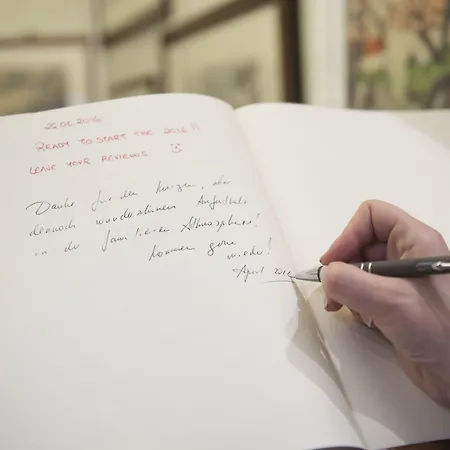 READY TO START THE 2016!!
LEAVE YOUR REVIEWS ☺
Danke für den kurzen, aber
dennoch wunderschönen Aufenthalt
in der familiären Athmosphäre!
Kommen gerne
wieder!
April 2016